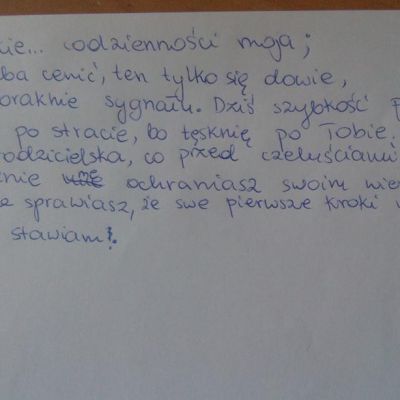 cie... codzienności moja;
ba cenić, ten tylko się dowie,
braknie sygnału. Dziś szybkość p
po stracie, bo tęsknię po Tobie.
rodzicielska, co przed czeluściami
nie ochraniasz swoim wie
z sprawiasz, że swe pierwsze kroki w
stawiam!.